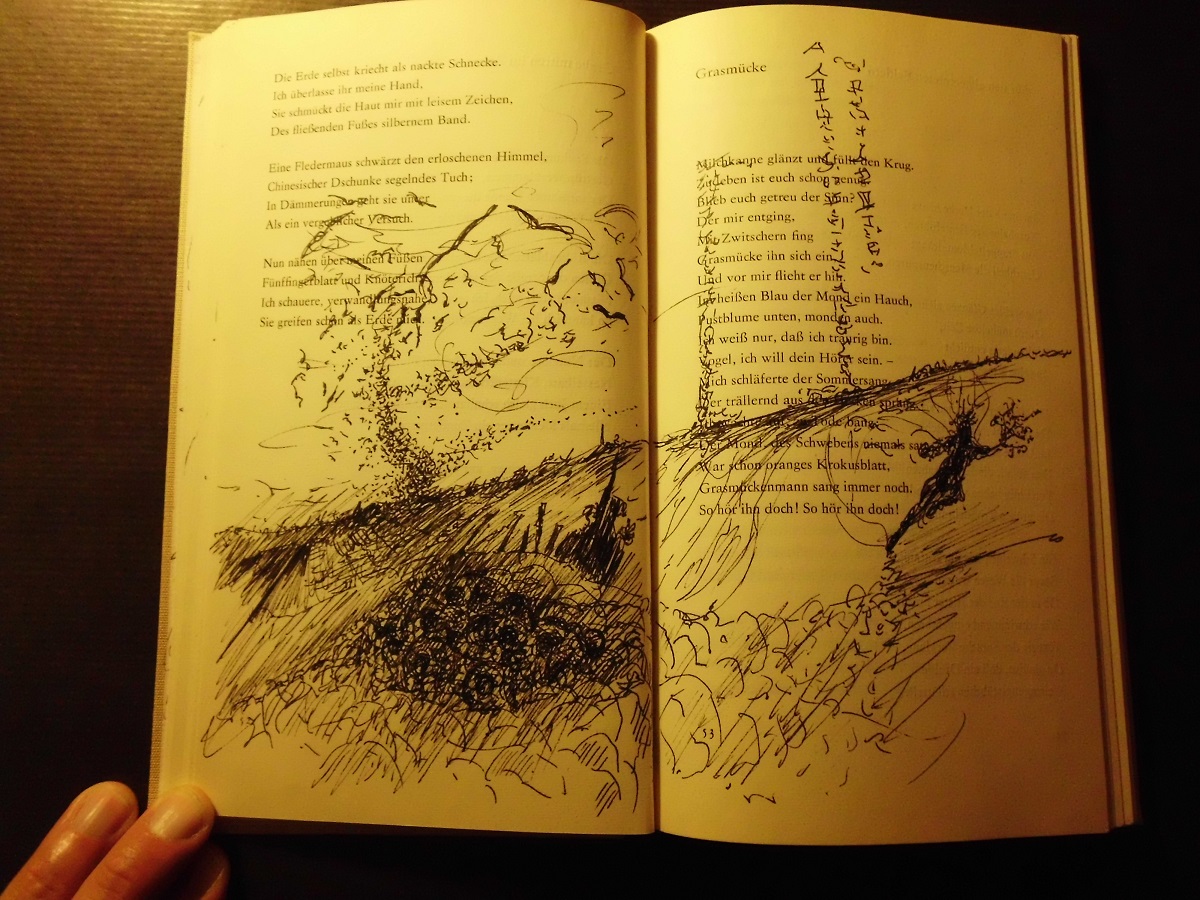 Die Erde selbst kriecht als nackte Schnecke.
Ich überlasse ihr meine Hand,
Sie schmückt die Haut mir mit leisem Zeichen,
Des fließenden Fußes silbernem Band.
Eine Fledermaus schwärzt den erloschenen Himmel,
Chinesischer Dschunke segelndes Tuch;
In Dämmerungen geht sie unter
Als ein vergeblicher Versuch.
Nun nahen über meinen Füßen
Fünffingerblatt und Knöterich.
Ich schauere, verwandlungsnahe,
Sie greifen schon als Erde mich.
Grasmücke
Milchkanne glänzt und füllt den Krug.
Zu leben ist euch schon genug
Blieb euch getreu der Sinn?
Der mir entging,
Mit Zwitschern fing
Grasmücke ihn sich ein
Und vor mir flieht er hin.
In heißen Blau der Mond ein Hauch,
Pustblume unten, monden auch.
Ich weiß nur, daß ich traurig bin.
Vogel, ich will dein Hörer sein. –
Mich schläferte der Sommersang,
Der trällernd aus den sprang,
öde bang.
Der Mond, des Schwebens niemals
War schon oranges Krokusblatt,
Grasmückenmann sang immer noch.
So hör ihn doch! So hör ihn doch!
53